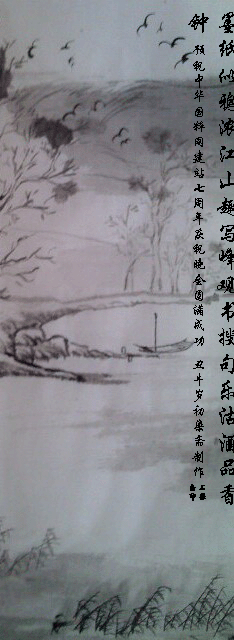 墨纸似雅浓江山趣写峰观书搜句乐沽酒品香
钟 预祝中华国粹网建站七周年庆祝晚会圆满成功 丑牛岁初染斋制作